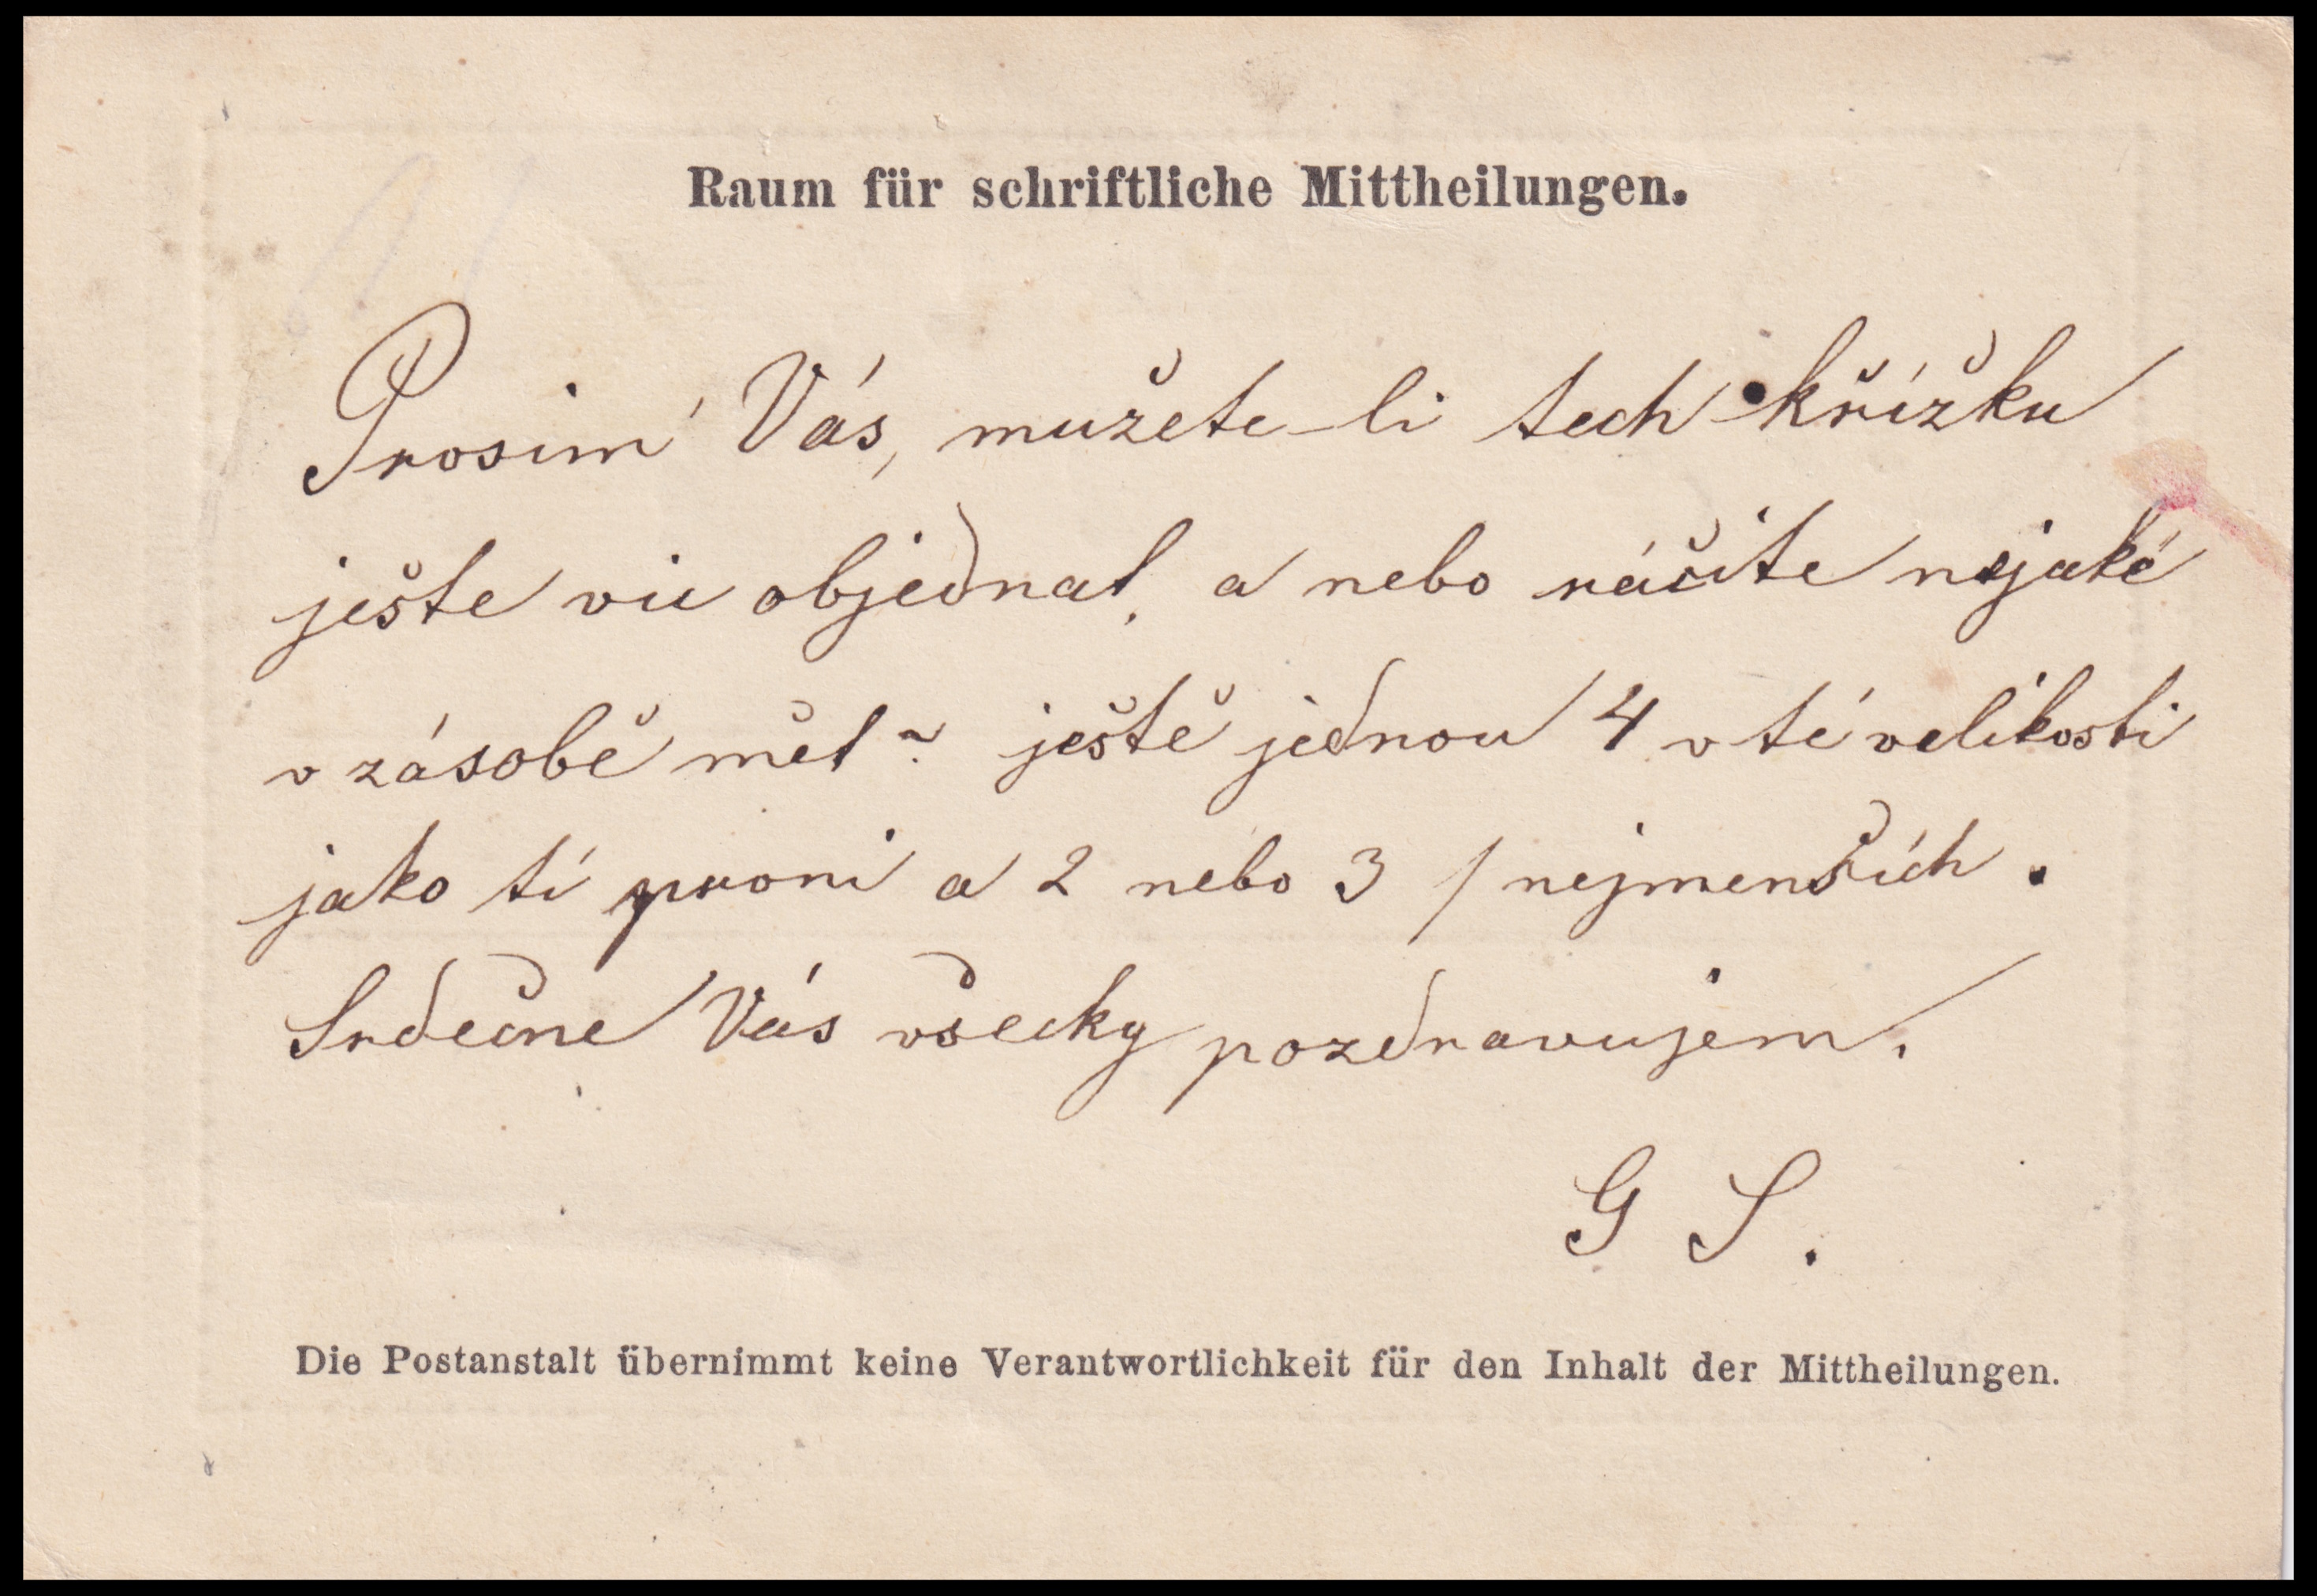 Raum für schriftliche Mittheilungen.
Prosím Vás, mužete-li tech křížku
ješte vic objednat, a nebo ráčite nejaké
v zásobě mět? ještě jednou 4 v té velikosti
jako tí prvni a 2 nebo 3 / nejmenších.
Srdečne Vás všecky pozdravujem.
G S.
Die Postanstalt übernimmt keine Verantwortlichkeit für den Inhalt der Mittheilungen.